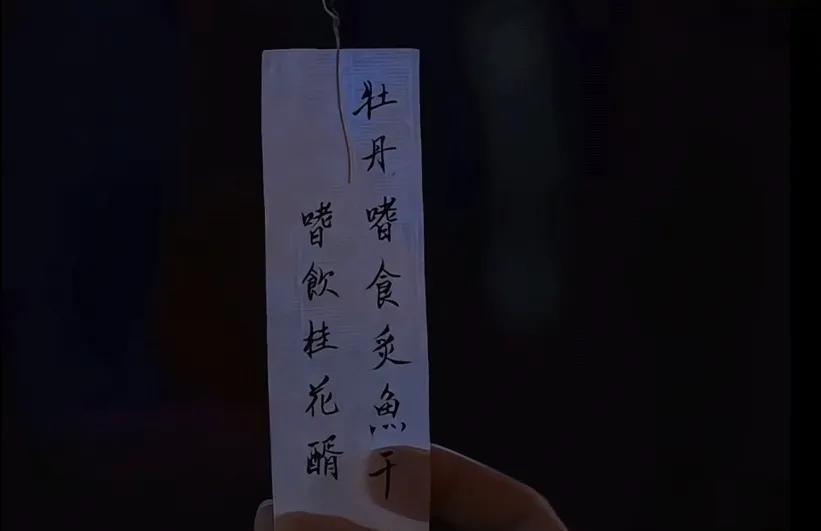 牡丹嗜食炙魚干
嗜飲桂花醑